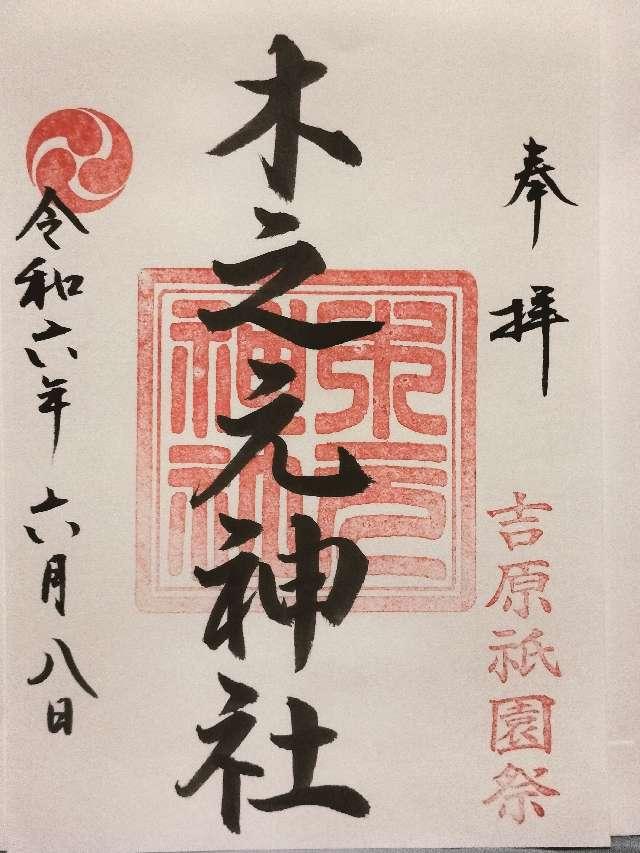 奉拝
吉原祇園祭
木之元神社
令和六年六月八日